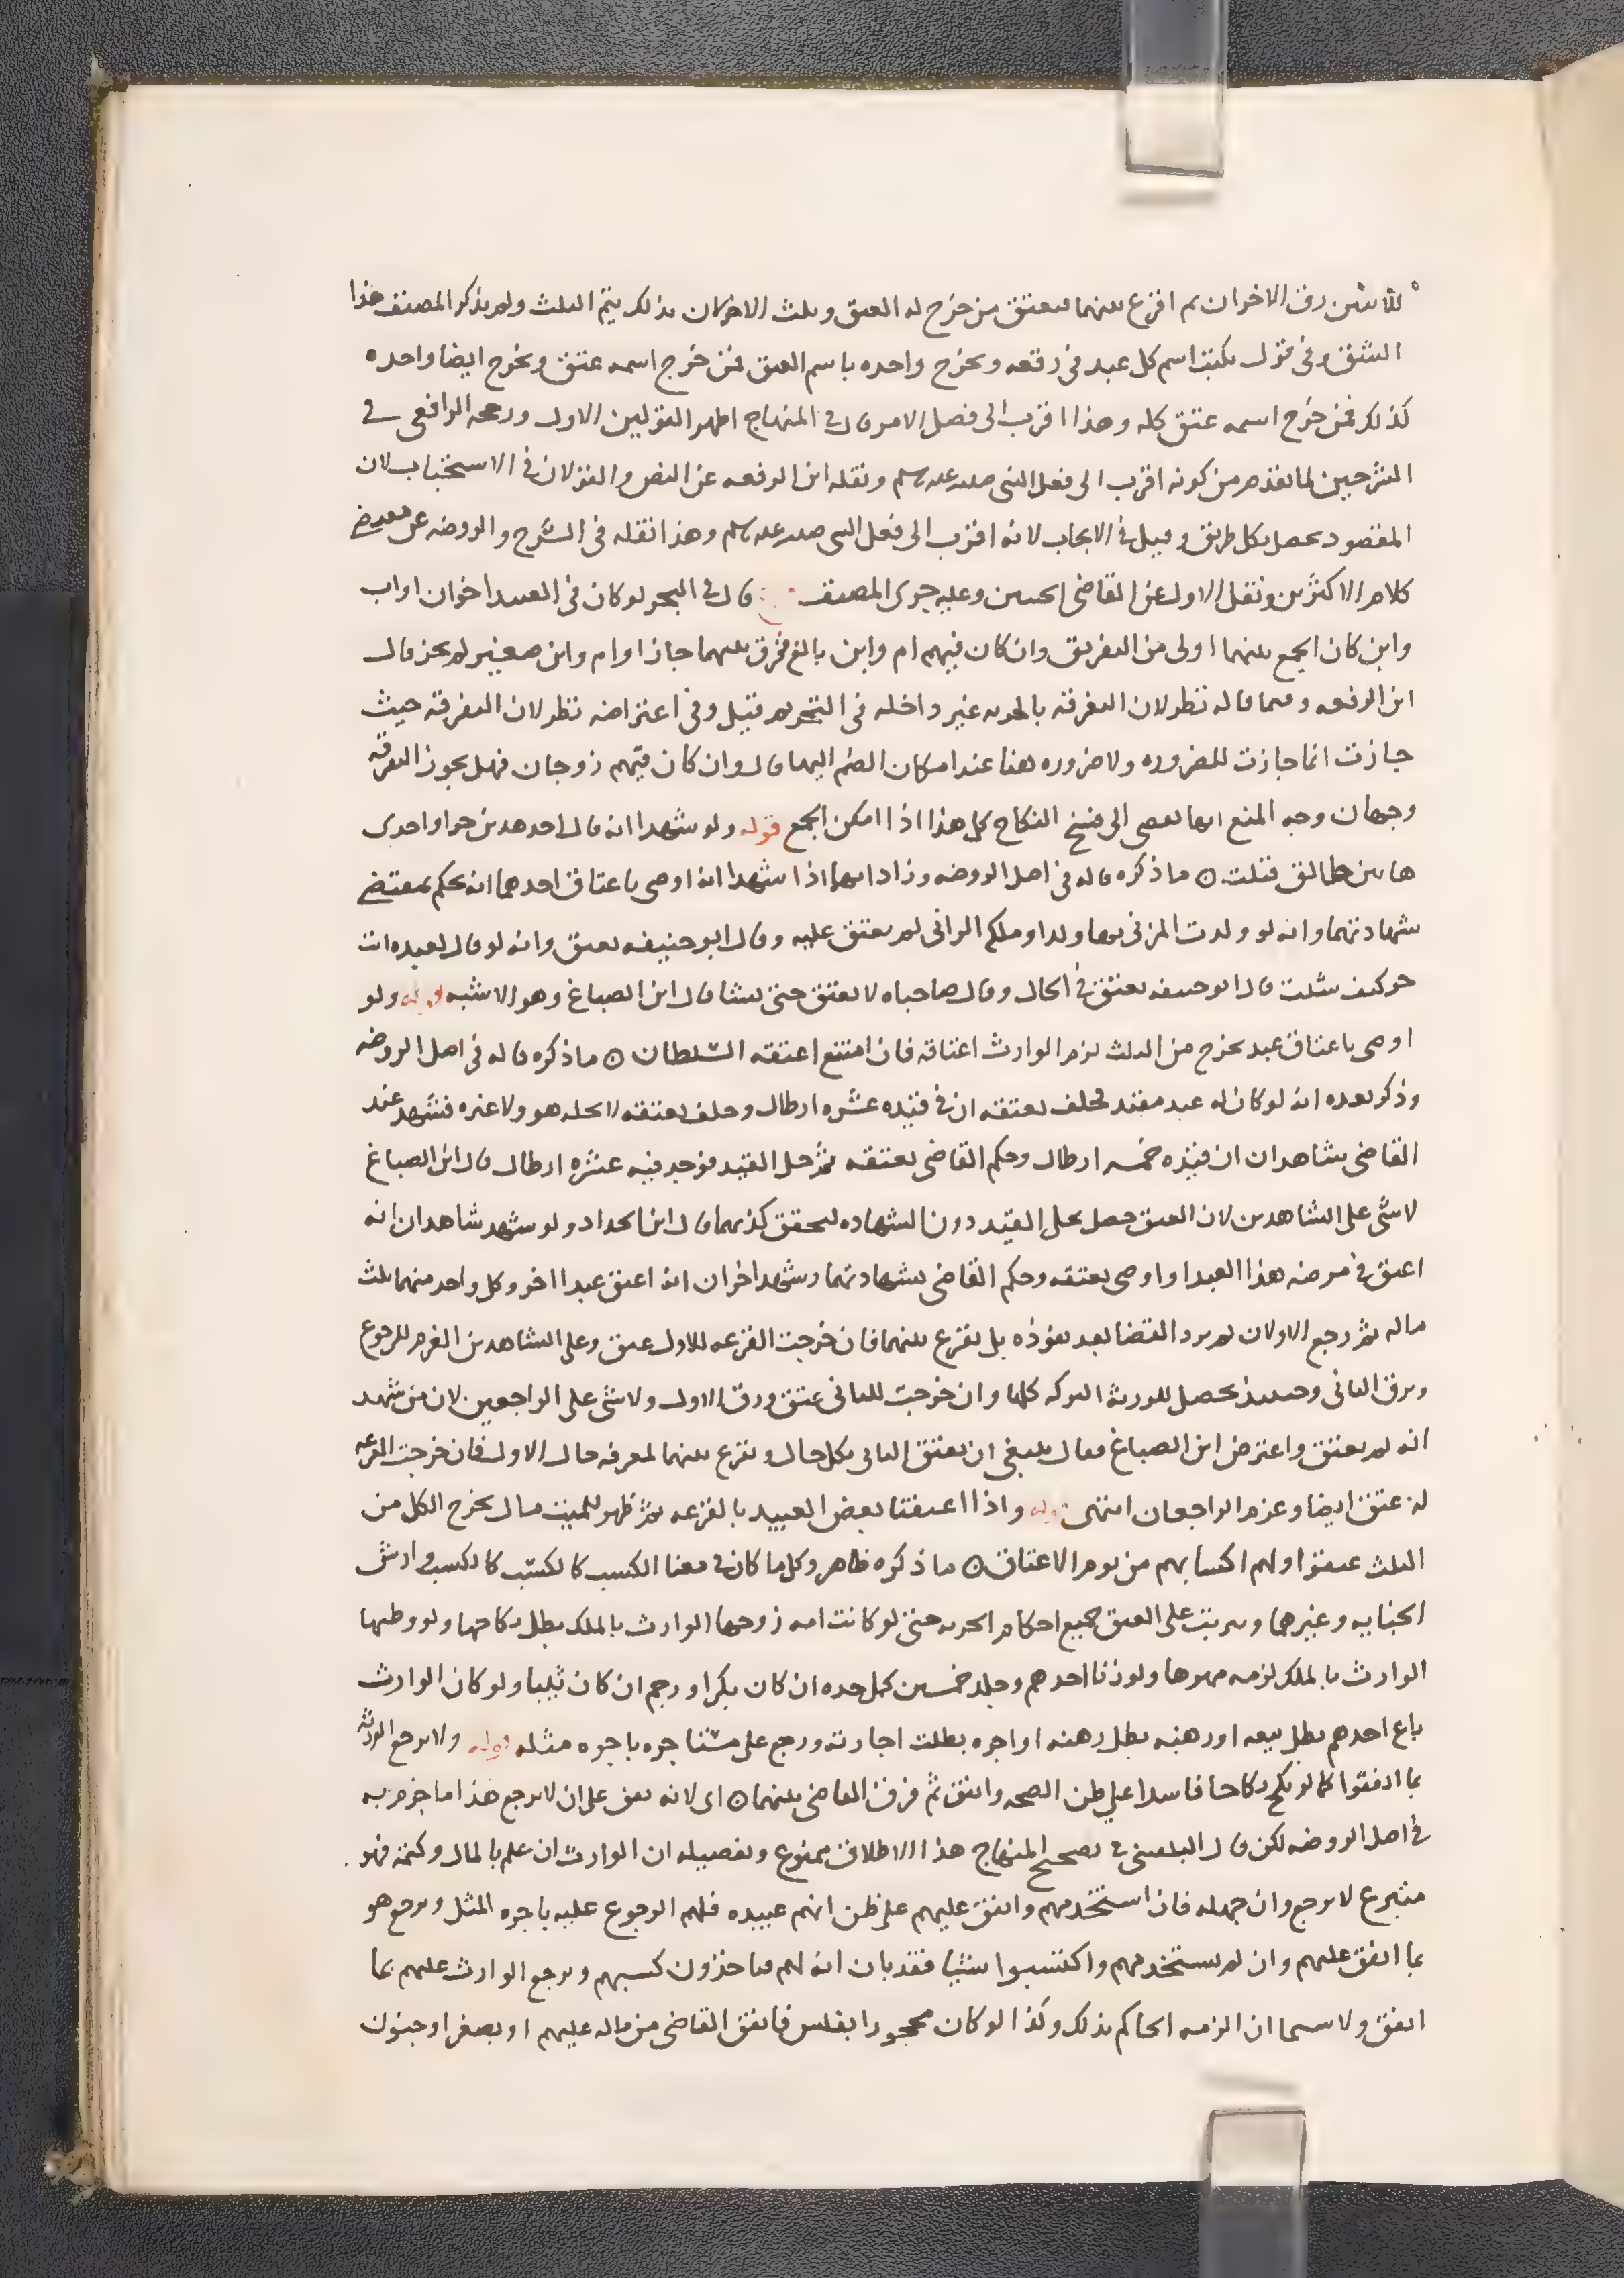 للاثنين رق الاخران ثم اقرع بينهما فيعتق من خرج له العتق وثلث الاخر لان بذلك يتم الثلث ولم يذكر المصنف هذا
الشق وفي قول يكتب اسم كل عبد في رقعه ويخرج واحده باسم العتق فمن خرج اسمه عتق ويخرج ايضا واحده
كذلك فمن خرج اسمه عتق كله وهذا اقرب الى فصل الامر قال في المنهاج اظهر القولين الاول ورجحه الرافعي في
الشرحين لما تقدم من كونه اقرب الى فعل النبي صلى الله عليه وسلم ونقله ابن الرفعه عن النص والقولان في الاستحباب لان
المقصود يحصل بكل طريق وقيل في الايجاب لانه اقرب الى فعل النبي صلى الله عليه وسلم وهذا نقله في الشرح والروضه عن مقتضى
كلام الاكثرين ونقل الاول عن القاضي الحسين وعليه جرى المصنف قال في البحر لو كان في العبيد اخوان او اب
وابن كان الجمع بينهما اولى من التفريق وان كان فيهم ام وابن بالغ ففرق بينهما جاز او ام وابن صغير لم يجز قال
ابن الرفعه وفيما قاله نظر لان التفرقه بالحريه غير داخله في التحريم قيل وفي اعتراضه نظر لان التفرقه حيث
جازت انما جازت للضروره ولا ضروره هنا عند امكان الضم اليها قال وان كان فيهم زوجان فهل يجوز التفرقه
وجهان وجه المنع انها تفضي الى فسخ النكاح كل هذا اذا امكن الجمع قوله ولو شهدا انه قال احد هذين حر او احدى
هاتين طالق قبلت ه ما ذكره قاله في اصل الروضه وزاد انهما اذا شهدا انه اوصى باعتاق احدهما انه يحكم بمقتضى
شهادتهما وانه لو ولدت المزني بها ولدا وملكه الزاني لم يعتق عليه وقال ابو حنيفه يعتق وانه لو قال لعبده انت
حر كيف شئت قال ابو حنيفه يعتق في الحال وقال صاحباه لا يعتق حتى يشا قال ابن الصباغ وهو الاشبه قوله ولو
اوصى باعتاق عبد يخرج من الثلث لزم الوارث اعتاقه فان امتنع اعتقه السلطان ه ما ذكره قاله في اصل الروضه
وذكر بعده انه لو كان له عبد مقيد فحلف بعتقه ان في قيده عشره ارطال وحلف بعتقه لا يحله هو ولا غيره فشهد عند
القاضي شاهدان ان قيده خمسه ارطال وحكم القاضي بعتقه ثم حل القيد فوجد فيه عشره ارطال قال ابن الصباغ
لا شي على الشاهدين لان العتق حصل بحل القيد دون الشهاده لتحقق كذبهما قال ابن الحداد ولو شهد شاهدان انه
اعتق في مرضه هذا العبد او اوصى بعتقه وحكم القاضي بشهادتهما وشهد اخران انه اعتق عبدا اخر وكل واحد منهما ثلث
ماله ثم رجع الاولان لم يرد القضا بعد نفوذه بل يقرع بينهما فان خرجت القرعه للاول عتق وعلى الشاهدين الغرم للرجوع
ويرق الثاني وحينئذ يحصل للورثه التركه كلها وان خرجت للثاني عتق ورق الاول ولا شي على الراجعين لان من شهد
انه لم يعتق واعترض ابن الصباغ فقال ينبغي ان يعتق الثاني بكل حال ويقرع بينهما لمعرفه حال الاول فان خرجت القرعه
له عتق ايضا وغرم الراجعان انتهى قوله واذا اعتقنا بعض العبيد بالقرعه ثم ظهر للميت مال يخرج الكل من
الثلث عتقوا ولهم اكسابهم من يوم الاعتاق ه ما ذكره ظاهر وكل ما كان في معنا الكسب كالكسب كالكسب وارش
الجنايه وغيرها ويترتب على العتق جميع احكام الحريه حتى لو كانت امه زوجها الوارث بالملك بطل نكاحها ولو وطيها
الوارث بالملك لزمه مهرها ولو زنا احدهم وجلد خمسين كمل حده ان كان بكرا ورجم ان كان ثيبا ولو كان الوارث
باع احدهم بطل بيعه او رهنه بطل رهنه او اجره بطلت اجارته ورجع على مستاجره باجره مثله قوله ولا يرجع الوارث
بما انفقوا كما لو نكح نكاحا فاسدا على ظن الصحه وانفق ثم فرق القاضي بينهما ه اي لانه نفق على ان لا يرجع هذا ما جزم به
في اصل الروضه لكن قال البلقيني في تصحيح المنهاج هذا الاطلاق ممنوع وتفصيله ان الوارث ان علم بالمال وكتمه فهو
متبرع لا يرجع وان جهله فان استخدمهم وانفق عليهم على ظن انهم عبيده فلهم الرجوع عليه باجره المثل ويرجع هو
بما انفق عليهم وان لم يستخدمهم واكتسبوا شيا فقد بان انه لهم فياخذون كسبهم ويرجع الوارث عليهم بما
انفق ولا سيما ان الزمه الحاكم بذلك وكذا لو كان محجورا بفلس فانفق القاضي من ماله عليهم او بصغر او جنون